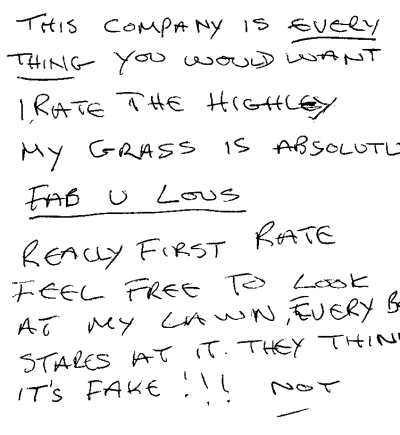 THIS COMPANY IS EVERY
THING YOU WOULD WANT
I RATE THE HIGHLEY
MY GRASS IS ABSOLUTL
FAB U LOUS
REALLY FIRST RATE
FEEL FREE TO LOOK
AT MY LAWN, EVERY B
STARES AT IT. THEY THIN
IT'S FAKE !!! NOT